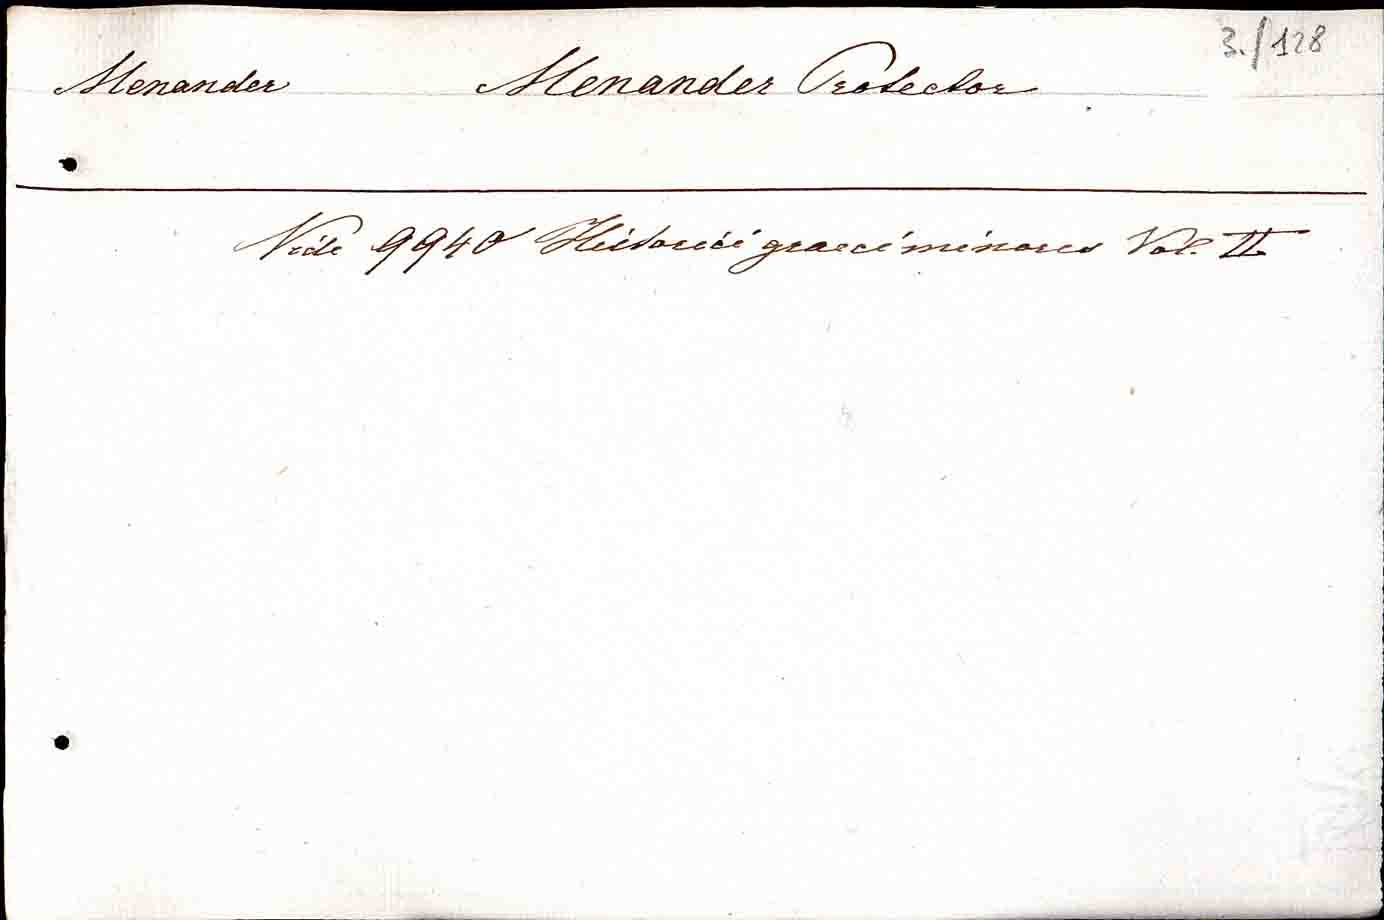 3./128
Menander Menander Protector
Vide 9940 Historici graeci minores Vol. II